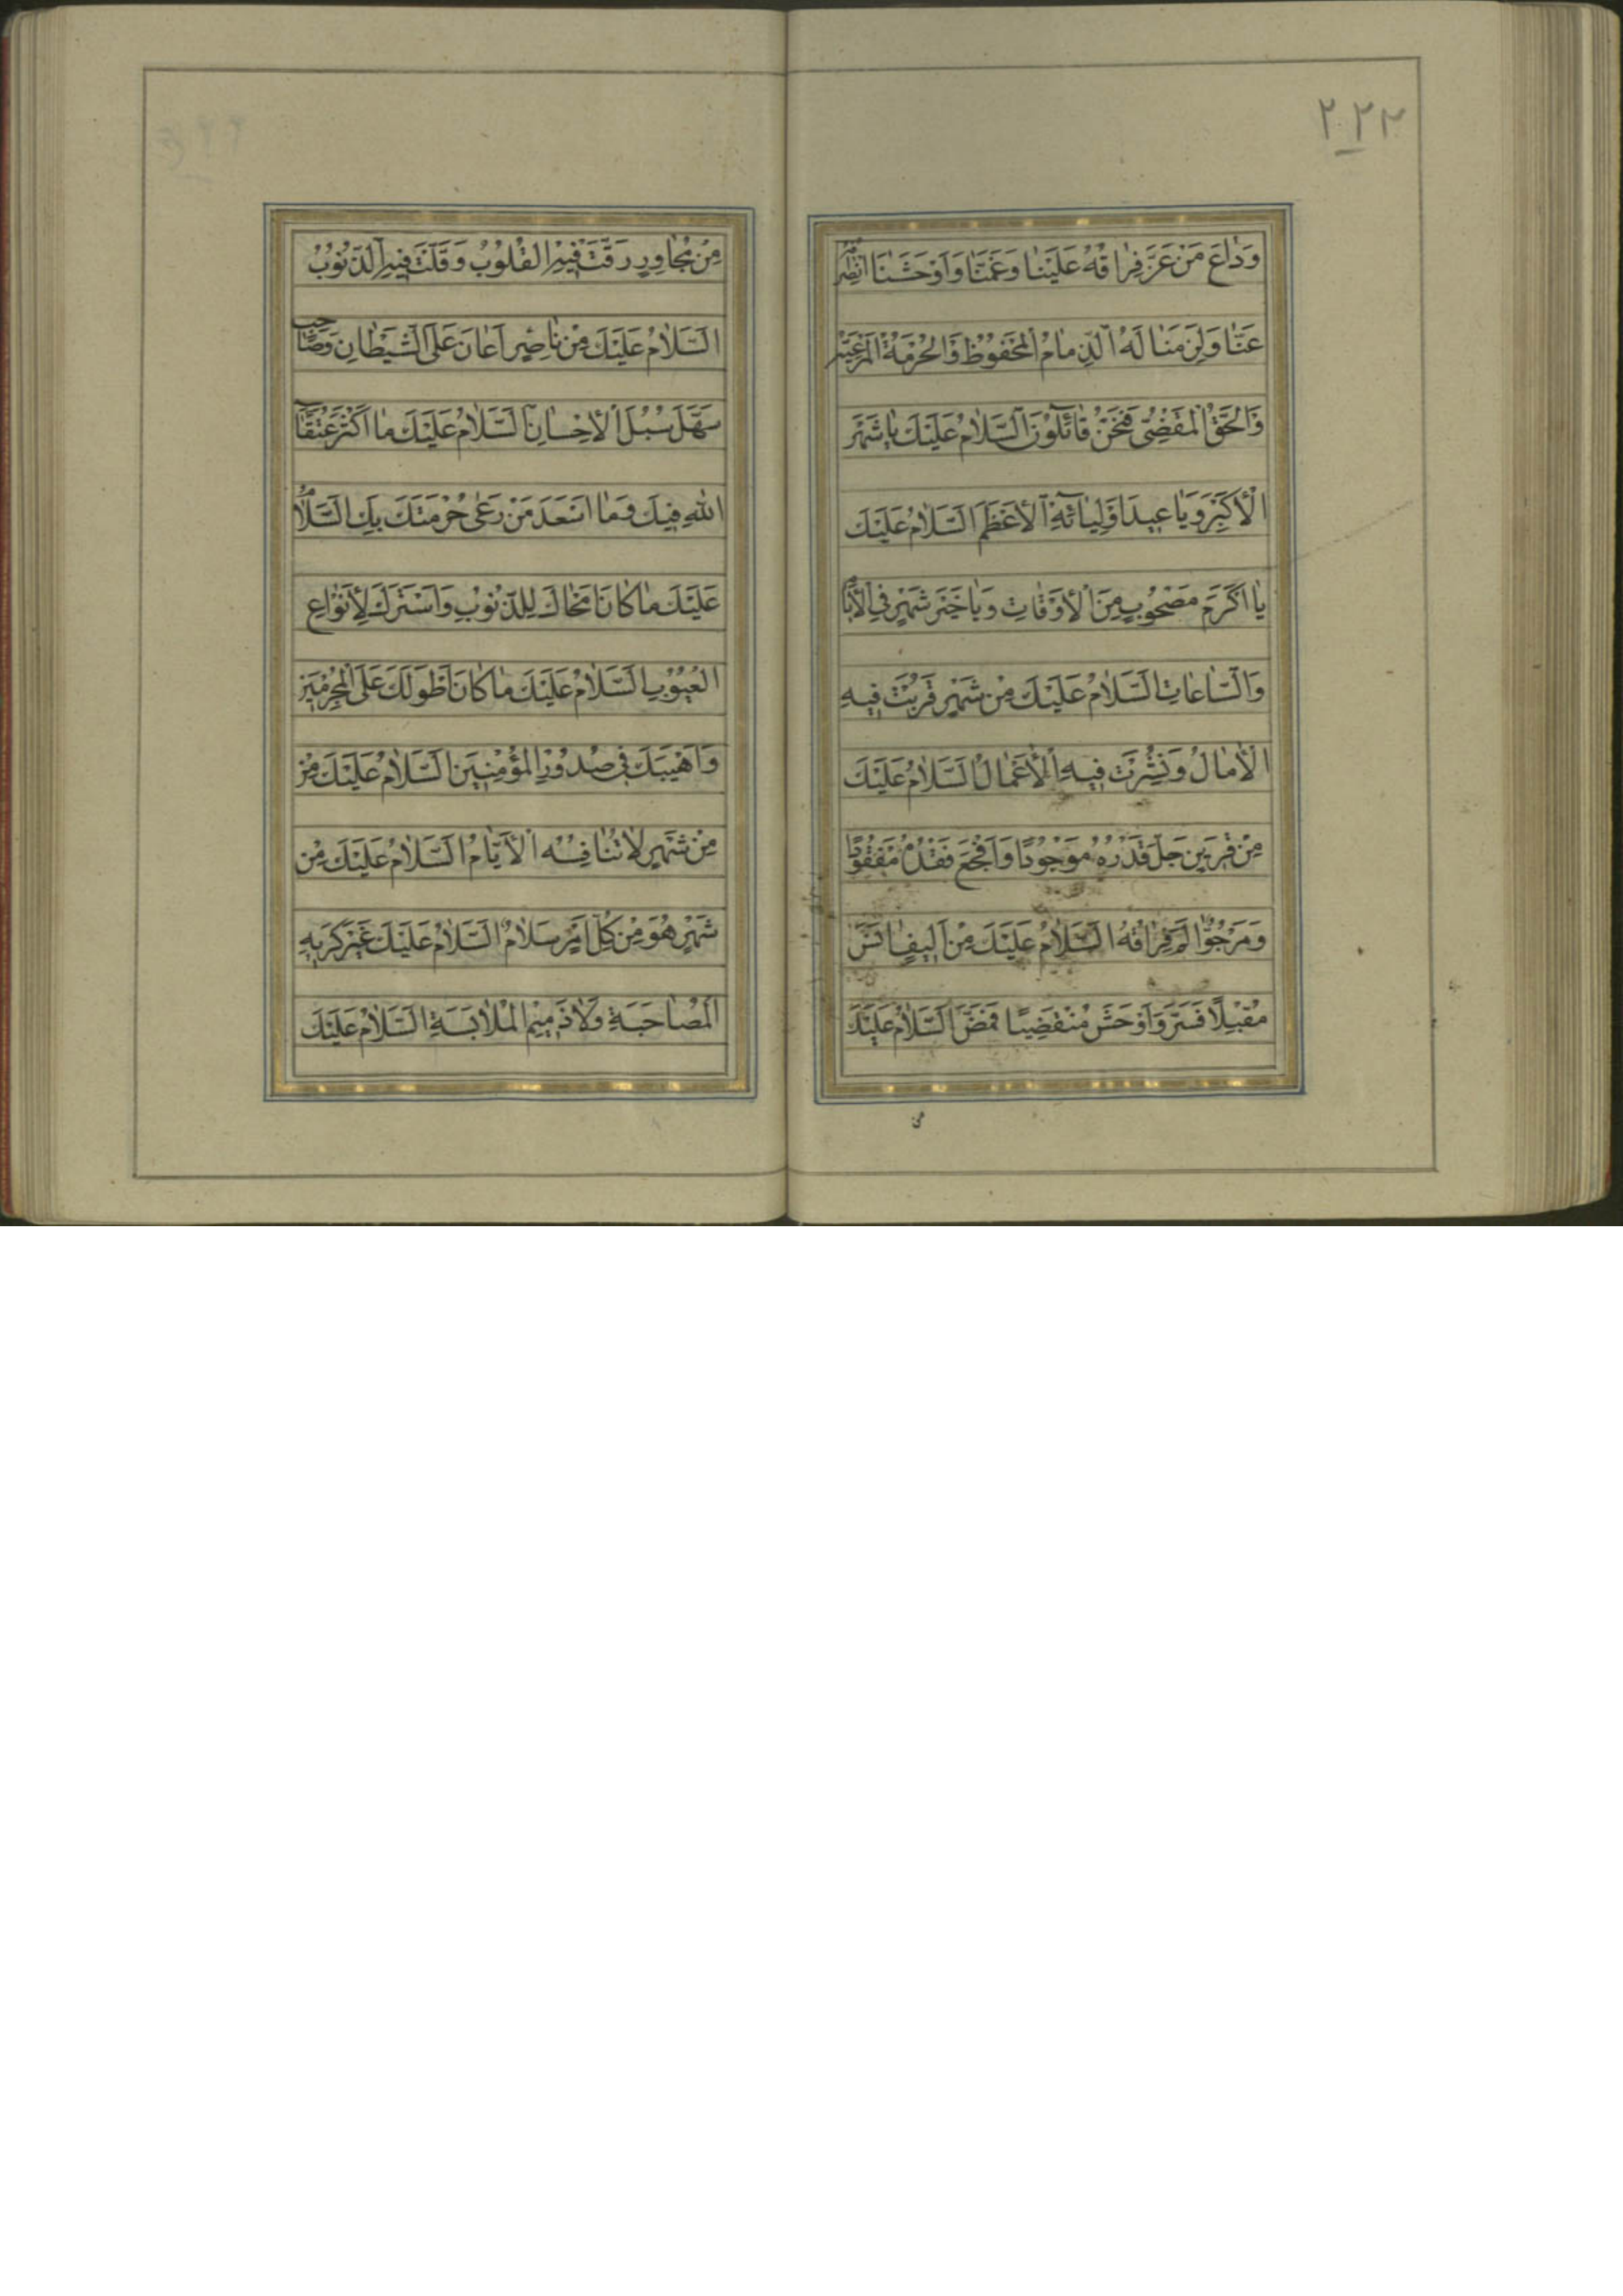 ۲۲۲
وَدٰاعَ مَنْ عَزَّ فِرٰاقُهُ عَلَيْنٰا وَغَمَّنٰا وَاَوْحَشَنٰا
عَنّٰا وَلَزِمَنٰا لَهُ الذِّمٰامُ الْمَحْفُوظُ وَالْحُرْمَةُ الْمَرْعِيَّةُ
وَالْحَقُّ الْمَقْضِىُّ فَنَحْنُ قٰائِلُونَ اَلسَّلٰامُ عَلَيْكَ يٰا شَهْرَ
الْأَكْبَرِ وَيٰا عِيدَ اَوْلِيٰائِهِ الْأَعْظَمَ اَلسَّلٰامُ عَلَيْكَ
يٰا اَكْرَمَ مَصْحُوبٍ مِنَ الْأَوْقٰاتِ وَيٰا خَيْرَ شَهْرٍ فِي الْأَيّٰامِ
وَالسّٰاعٰاتِ اَلسَّلٰامُ عَلَيْكَ مِنْ شَهْرٍ قَرُبَتْ فِيهِ
الْأٰمٰالُ وَنُشِرَتْ فِيهِ الْأَعْمٰالُ اَلسَّلٰامُ عَلَيْكَ
مِنْ قَرِينٍ جَلَّ قَدْرُهُ مَوْجُودًا وَاَفْجَعَ فَقْدُهُ مَفْقُودًا
وَمَرْجُوٍّ اٰلَمَ فِرٰاقُهُ اَلسَّلٰامُ عَلَيْكَ مِنْ اَلِيفٍ اٰنَسَ
مُقْبِلًا فَسَرَّ وَاَوْحَشَ مُنْقَضِيًا فَمَضَّ اَلسَّلٰامُ عَلَيْكَ
من
مِنْ مُجٰاوِرٍ رَقَّتْ فِيهِ الْقُلُوبُ وَقَلَّتْ فِيهِ الذُّنُوبُ
اَلسَّلٰامُ عَلَيْكَ مِنْ نٰاصِرٍ اَعٰانَ عَلَى الشَّيْطٰانِ وَصٰاحِبٍ
سَهَّلَ سُبُلَ الْأِحْسٰانِ اَلسَّلٰامُ عَلَيْكَ مٰا اَكْثَرَ عُتَقٰاءَ
اللّٰهِ فِيكَ وَمٰا اَسْعَدَ مَنْ رَعٰى حُرْمَتَكَ بِكَ اَلسَّلٰامُ
عَلَيْكَ مٰا كٰانَ اَمْحٰاكَ لِلذُّنُوبِ وَاَسْتَرَكَ لِأَنْوٰاعِ
الْعُيُوبِ اَلسَّلٰامُ عَلَيْكَ مٰا كٰانَ اَطْوَلَكَ عَلَى الْمُجْرِمِينَ
وَاَهْيَبَكَ فِى صُدُورِ الْمُؤْمِنِينَ اَلسَّلٰامُ عَلَيْكَ مِنْ
مِنْ شَهْرٍ لٰا تُنٰافِسُهُ الْأَيّٰامُ اَلسَّلٰامُ عَلَيْكَ مِنْ
شَهْرٍ هُوَ مِنْ كُلِّ اَمْرٍ سَلٰامٌ اَلسَّلٰامُ عَلَيْكَ غَيْرَ كَرِيهِ
الْمُصٰاحَبَةِ وَلٰا ذَمِيمِ الْمُلٰابَسَةِ اَلسَّلٰامُ عَلَيْكَ